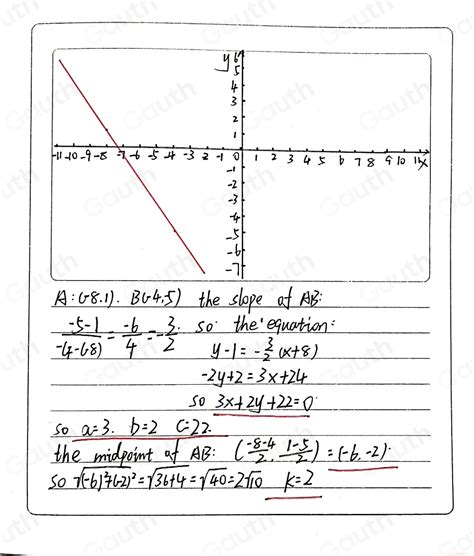 y
6
5
4
3
2
1
-11 -10 -9 -8 -7 -6 -5 -4 -3 -2 -1 0 1 2 3 4 5 6 7 8 9 10 11 x
-1
-2
-3
-4
-5
-6
-7
A: (-8.1). B(-4,5) the slope of AB:
-5-1/-4-(-8) = -6/4 = -3/2. so the equation:
y-1 = -3/2 (x+8)
-2y+2=3x+24
so 3x+2y+22=0
so a=3. b=2 c=22.
the midpoint of AB: (-8-4/2, 1-5/2) = (-6,-2).
so √(-6)²+(-2)² = √36+4 = √40 = 2√10 k=2
Gauth